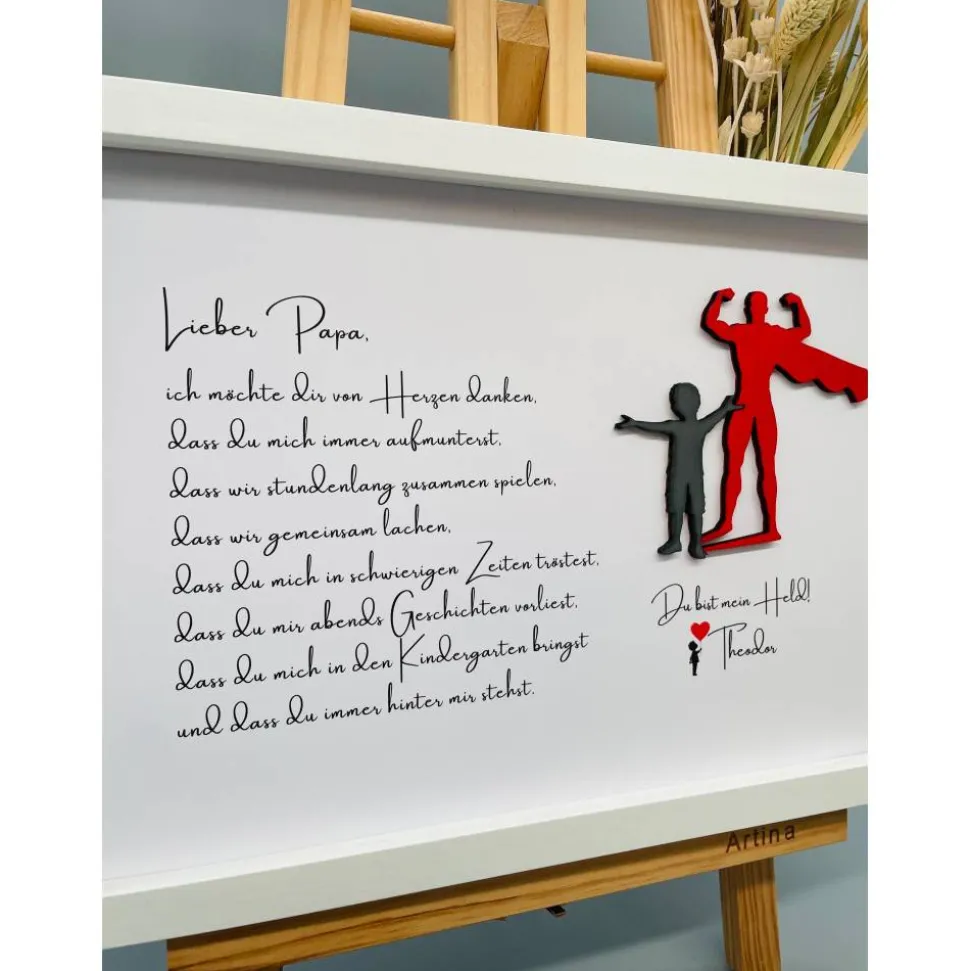 Lieber Papa,
ich möchte dir von Herzen danken,
dass du mich immer aufmunterst,
dass wir stundenlang zusammen spielen,
dass wir gemeinsam lachen,
dass du mich in schwierigen Zeiten tröstest,
dass du mir abends Geschichten vorliest,
dass du mich in den Kindergarten bringst
und dass du immer hinter mir stehst.
Du bist mein Held!
Theodor
Artina